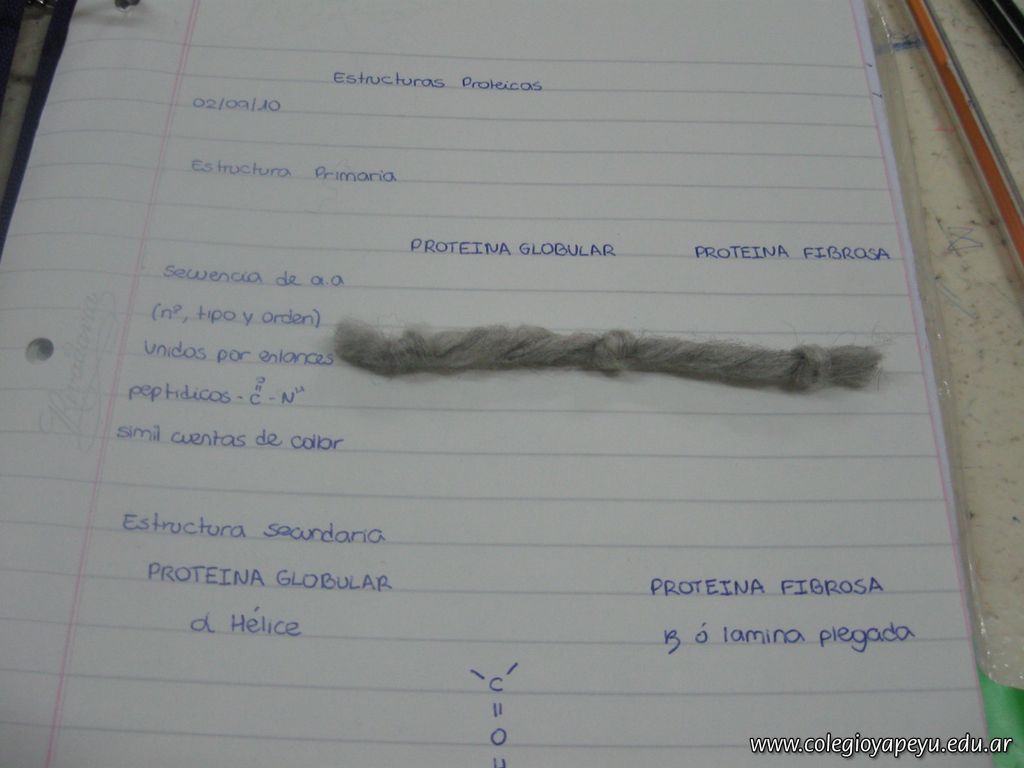 Estructuras Proteicas
02/09/10
Estructura Primaria
PROTEINA GLOBULAR PROTEINA FIBROSA
secuencia de a.a
(nº, tipo y orden)
unidos por enlances
peptidicos - C - N
O
||
H
simil cuentas de collar
Rivadavia
Estructura secundaria
PROTEINA GLOBULAR PROTEINA FIBROSA
α Hélice β ó lamina plegada
C
||
O
H
www.colegioyapeyu.edu.ar